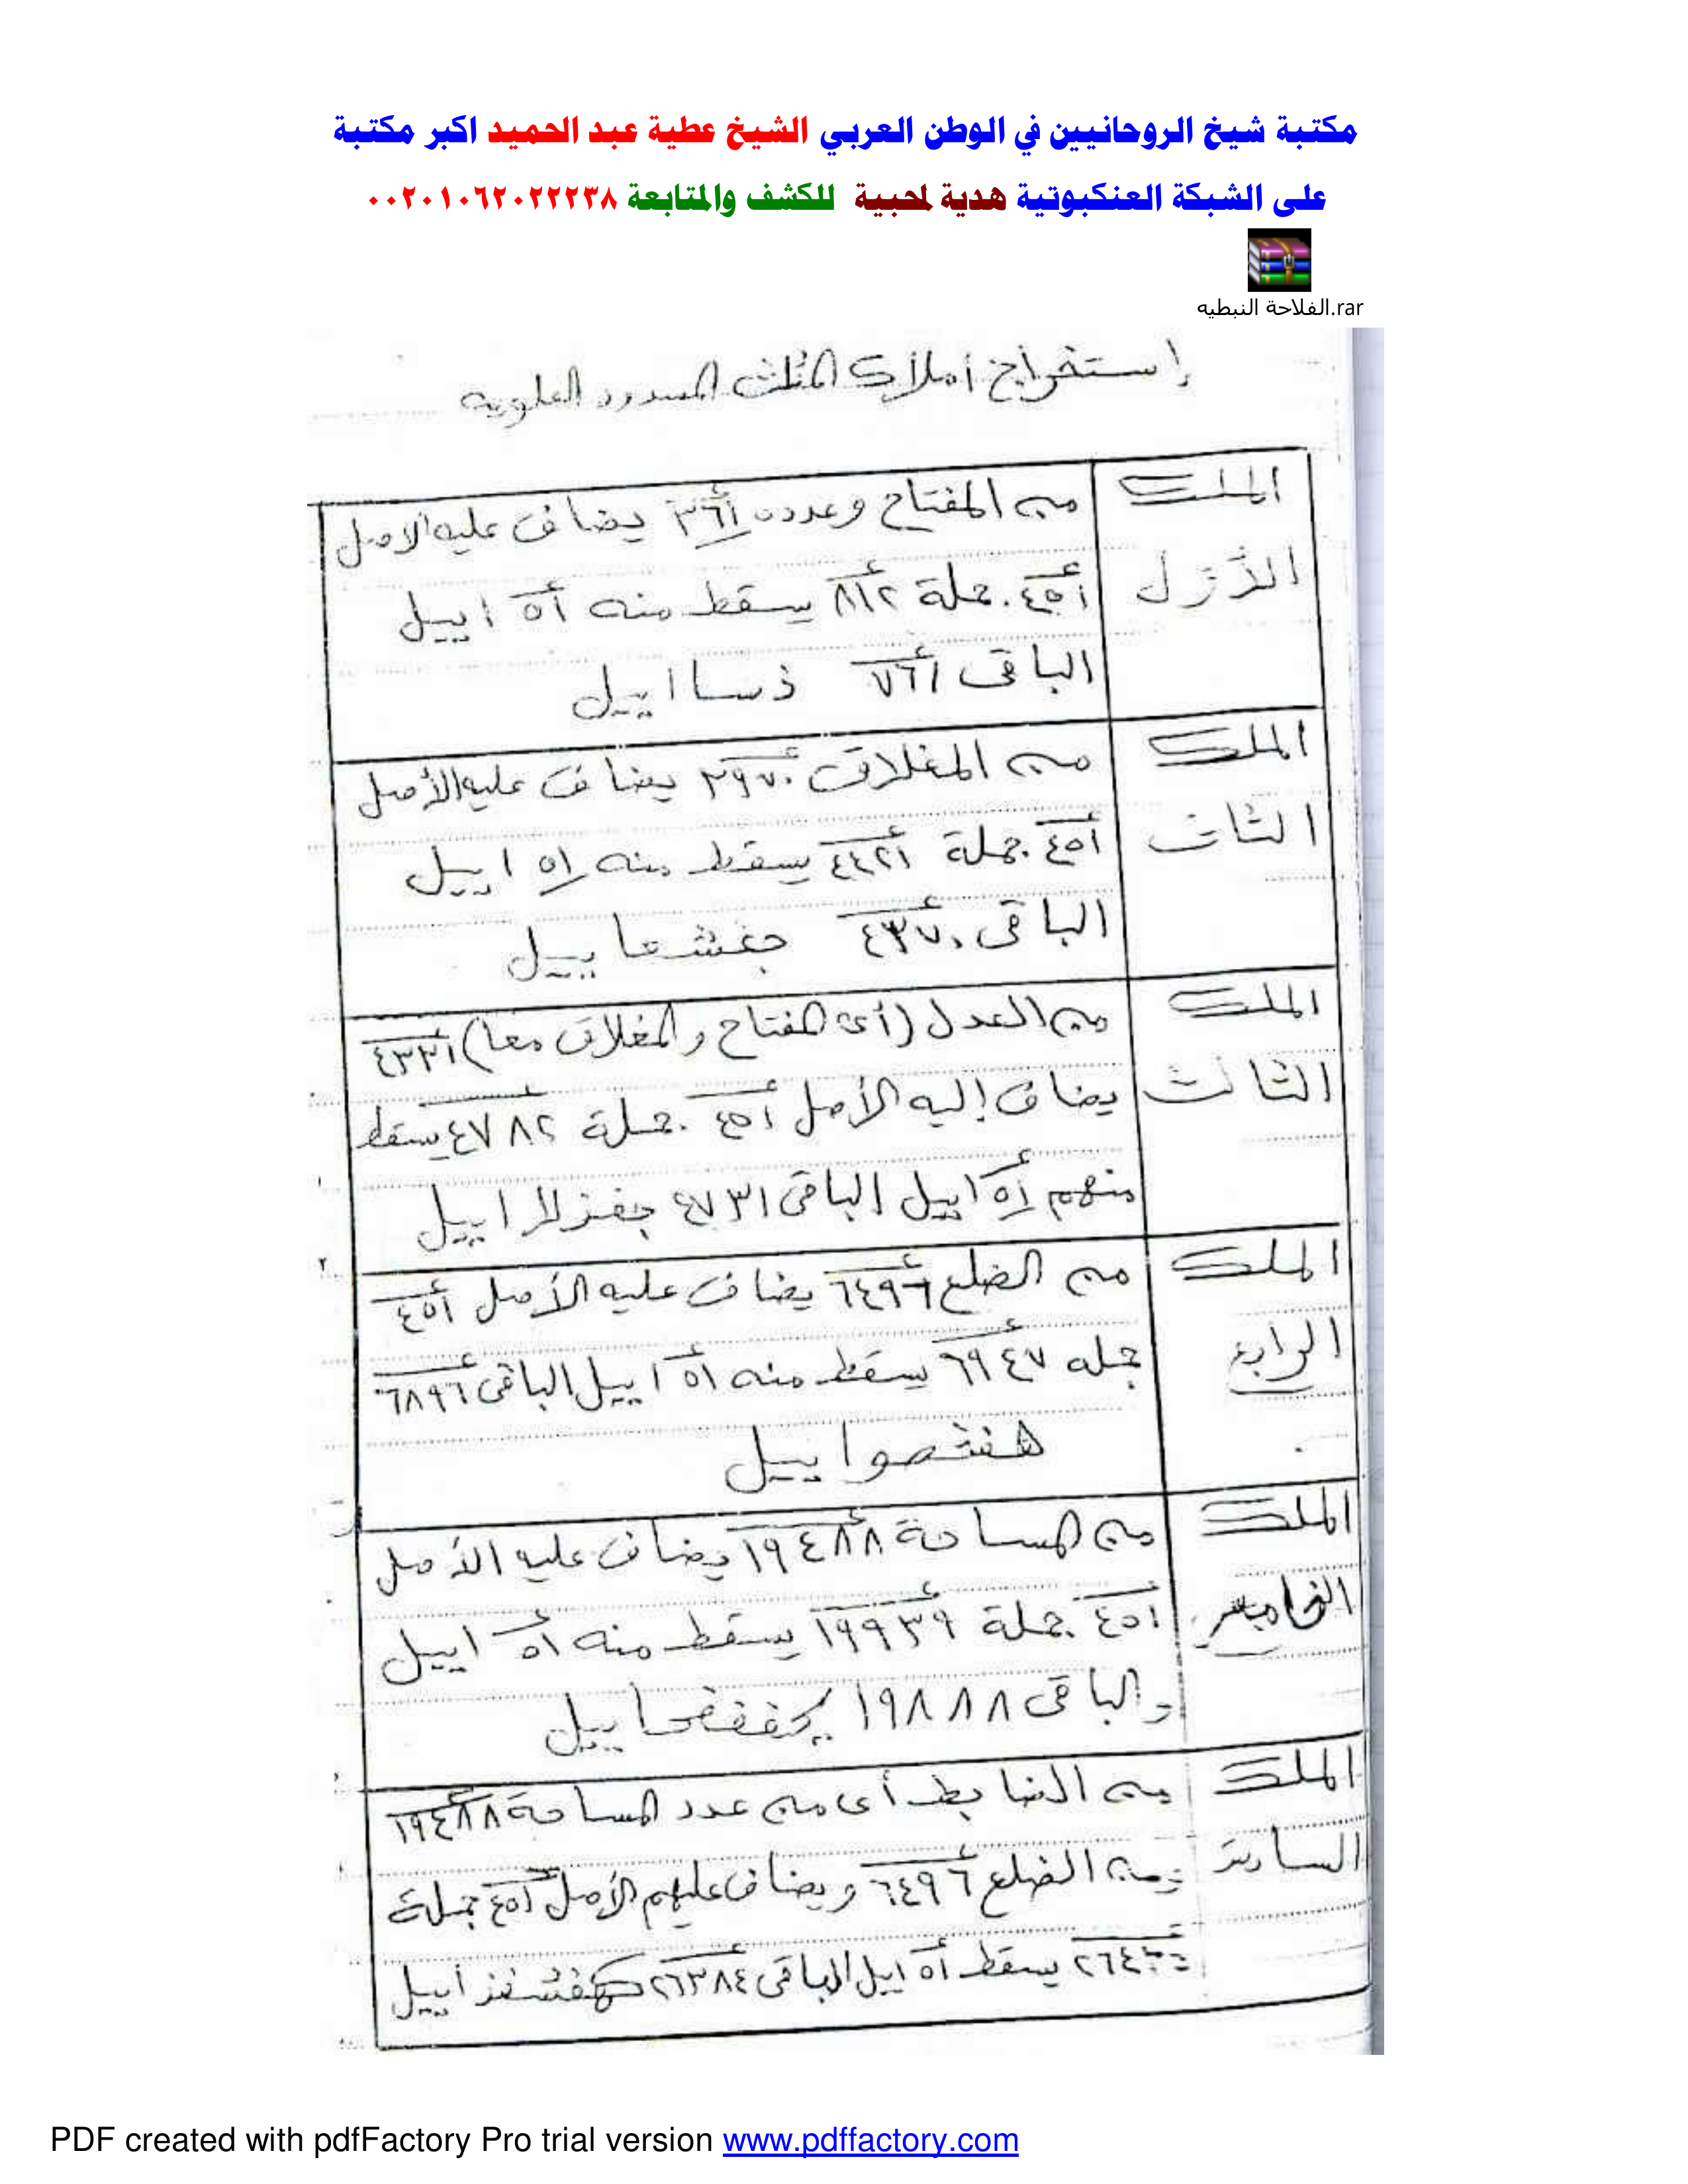 مكتبة شيخ الروحانيين في الوطن العربي الشيخ عطية عبد الحميد اكبر مكتبة
على الشبكة العنكبوتية هدية لمحبية للكشف والمتابعة ٠٠٢٠١٠٦٢٠٢٢٢٣٨
الفلاحة النبطيه.rar
إستخراج أملاك المثلث المسدود العلويه
الملك الأول
من المفتاح وعدده ٣٦١ يضاف عليه الاصل
٤٥١ جملة ٨١٢ يسقط منه ٥١ اييل
الباقى ٧٦١ ذسا اييل
الملك الثانى
من المغلاق ٣٩٧٠ يضاف عليه الأصل
٤٥١ جملة ٤٤٢١ يسقط منه ٥١ اييل
الباقى ٤٣٧٠ جغشعاييل
الملك الثالث
من العدل (أى المفتاح والمغلاق معا) ٤٣٣١
يضاف إليه الأصل ٤٥١ جملة ٤٧٨٢ يسقط
منهم ٥١ اييل الباقى ٤٧٣١ جغذلا اييل
الملك الرابع
من الضلع ٦٤٩٦ يضاف عليه الأصل ٤٥١
جمله ٦٩٤٧ يسقط منه ٥١ اييل الباقى ٦٨٩٦
الملك الخامس
من المساحة ١٩٤٨٨ يضاف عليه الأصل
٤٥١ جملة ١٩٩٣٩ يسقط منه ٥١ اييل
والباقى ١٩٨٨٨
الملك السادس
من الضابط أى من عدد المساحة ١٩٤٨٨
ومن الضلع ٦٤٩٦ ويضاف عليهم الأصل ٤٥١ جملة
يسقط ٥١ اييل الباقى ٢٦٣٨٤
PDF created with pdfFactory Pro trial version www.pdffactory.com